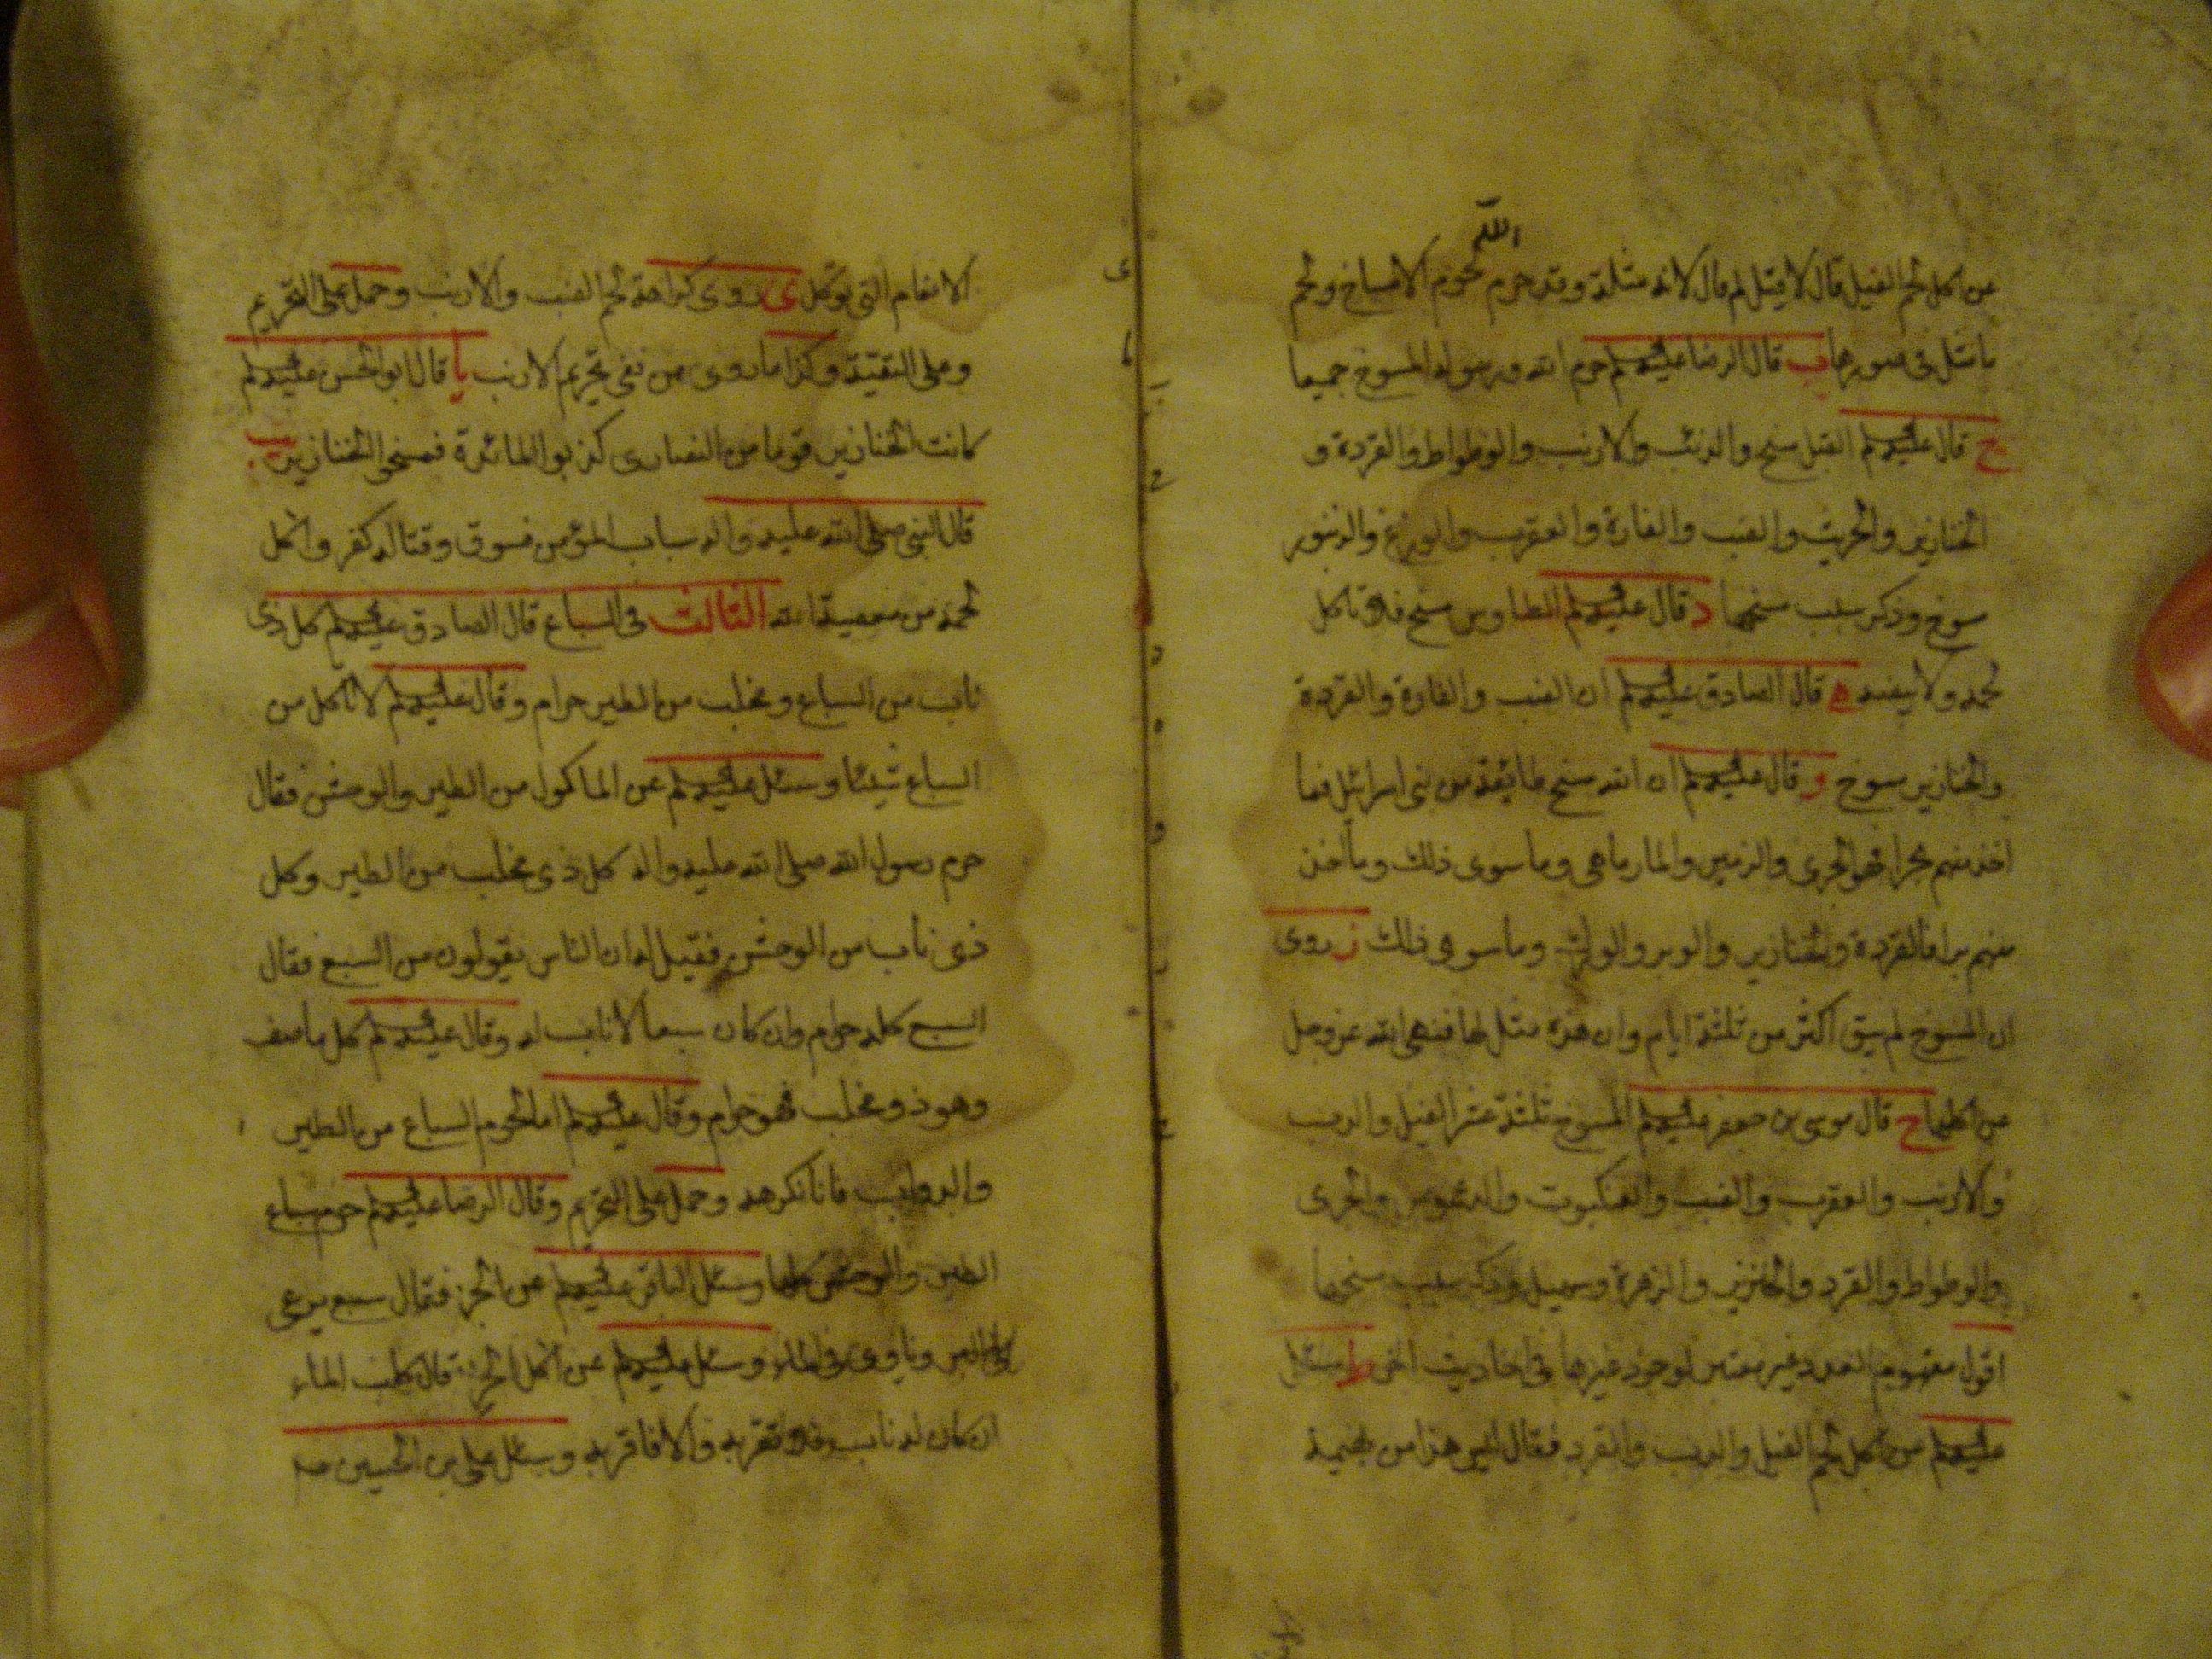 الله
عن اكل لحم الفيل قال لا فقيل لم قال لانه مثلة وقد حرم لحوم الامساخ ولحم
ما مثل في صورها ب قال الرضا عليه السلم حرم الله ورسوله المسوخ جميعا
ج قال عليه السلم الفيل مسخ والذئب والارنب والوطواط والقردة و
الخنازير والجريث والضب والفارة والعقرب والوزغ والزنبور
مسوخ وذكر سبب مسخها د قال عليه السلم الطاوس مسخ فلا تاكل
لحمه ولا بيضه ه قال الصادق عليه السلم ان الضب والفارة والقردة
والخنازير مسوخ و قال عليه السلم ان الله مسخ طائفة من بني اسرائيل فما
اخذ منهم بحرا فهو الجري والزمير والمارماهي وما سوى ذلك وما اخذ
منهم برا فالقردة والخنازير والوبر والورل وما سوى ذلك ز روى
ان المسوخ لم يبق اكثر من ثلثة ايام وان هذه مثل لها فنهى الله عز وجل
عن اكلها ح قال موسى بن جعفر عليه السلم المسوخ ثلثة عشر الفيل والدب
والارنب والعقرب والضب والعنكبوت والدعموص والجرى
والوطواط والقرد والخنزير والزهرة وسهيل وذكر سبب مسخها
اقول مفهوم العدد غير معتبر لوجود غيرها في احاديث اخر ط سئل
عليه السلم عن اكل لحم الفيل والدب والقرد فقال ليس هذا من بهيمة
الانعام التي توكل ى روى كراهة لحم الضب والارنب وحمل على التحريم
وعلى التقية وكذا ما روى من نفى تحريم الارنب يا قال ابو الحسن عليه السلم
كانت الخنازير قوما من النصارى كذبوا المائدة فمسخوا خنازير يب
قال النبي صلى الله عليه واله سباب المؤمن فسوق وقتاله كفر واكل
لحمه من معصية الله الثالث في السباع قال الصادق عليه السلم كل ذى
ناب من السباع ومخلب من الطير حرام وقال عليه السلم لا تاكل من
السباع شيئا وسئل عليه السلم عن الماكول من الطير والوحش فقال
حرم رسول الله صلى الله عليه واله كل ذى مخلب من الطير وكل
ذى ناب من الوحش فقيل له ان الناس يقولون من السبع فقال
السبع كله حرام وان كان سبعا لا ناب له وقال عليه السلم كل ما صف
وهو ذو مخلب فهو حرام وقال عليه السلم اما لحوم السباع من الطير
والدواب فانا نكرهه وحمل على التحريم وقال الرضا عليه السلم حرم سباع
الطير والوحش كلها وسئل الباقر عليه السلم عن الخز فقال سبع يرعى
في البر وياوى في الماء وسئل عليه السلم عن اكل الخز قال كلب الماء
ان كان له ناب فلا تقربه والا فاقربه وسئل على بن الحسين